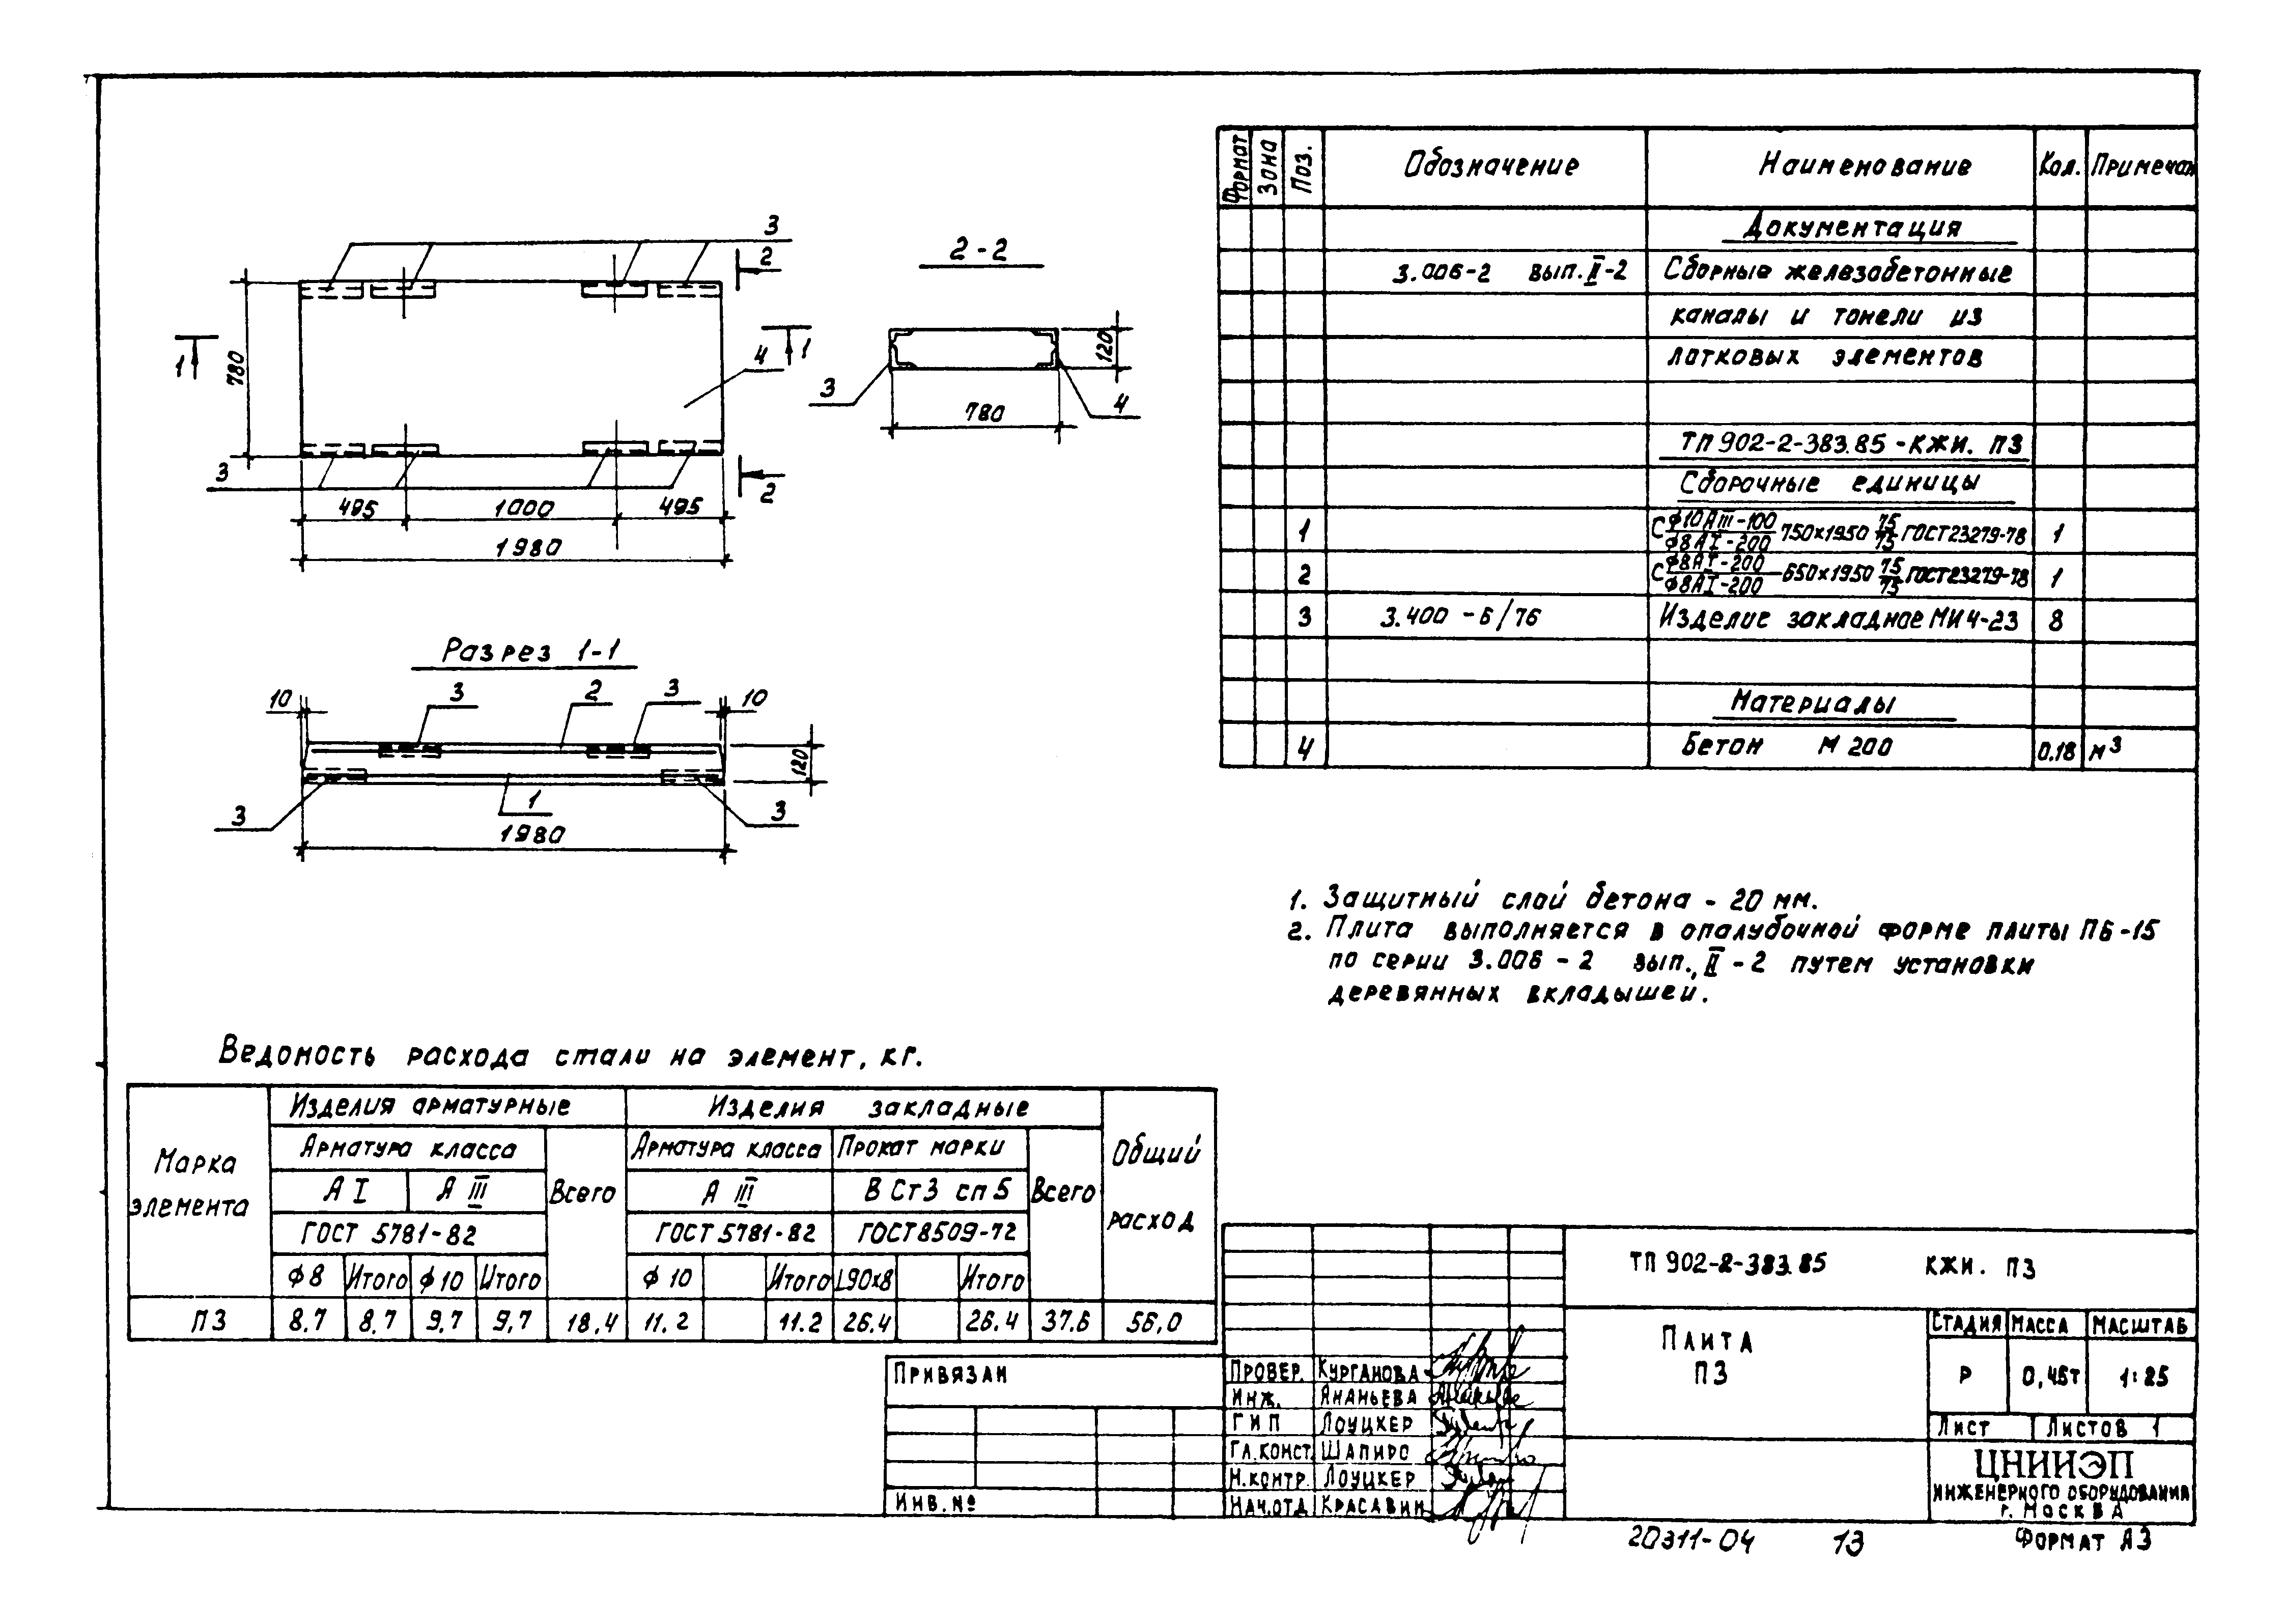 3
2
780
1
4
1
3
495
1000
495
2
1980
2-2
120
3
4
780
Разрез 1-1
10
3
2
3
10
120
3
1
3
1980
Формат
Зона
Поз.
Обозначение
Наименование
Кол.
Примечан
Документация
3.006-2 вып. II-2
Сборные железобетонные
каналы и тонели из
лотковых элементов
ТП 902-2-383.85 - КЖИ. П3
Сборочные единицы
1
С ϕ10АIII-100/ϕ8АI-200 750х1950 75/75 ГОСТ23279-78
1
2
С ϕ8АI-200/ϕ8АI-200 650х1950 75/75 ГОСТ23279-78
1
3
3.400 - 6/76
Изделие закладное МИ4-23
8
Материалы
4
Бетон М 200
0.18
м³
1. Защитный слой бетона - 20 мм.
2. Плита выполняется в опалубочной форме плиты П6-15
по серии 3.006-2 вып., II-2 путем установки
деревянных вкладышей.
Ведомость расхода стали на элемент, кг.
Марка
элемента
Изделия арматурные
Изделия закладные
Общий
расход
Арматура класса
Всего
Арматура класса
Прокат марки
Всего
А I
А III
А III
В Ст3 сп 5
ГОСТ 5781-82
ГОСТ 5781-82
ГОСТ 8509-72
ϕ8
Итого
ϕ10
Итого
ϕ 10
Итого
L90х8
Итого
П3
8.7
8.7
9.7
9.7
18.4
11.2
11.2
26.4
26.4
37.6
56,0
Привязан
Инв. №
ТП 902-2-383.85 КЖИ. П3
Плита
П3
Стадия
Масса
Масштаб
Р
0,45т
1:25
Лист
Листов 1
Провер. Курганова
Инж. Ананьева
ГИП Лоуцкер
Гл.конст. Шапиро
Н.контр. Лоуцкер
Нач.отд Красавин
ЦНИИЭП
инженерного оборудования
г. Москва
20311-04
13
Формат А3